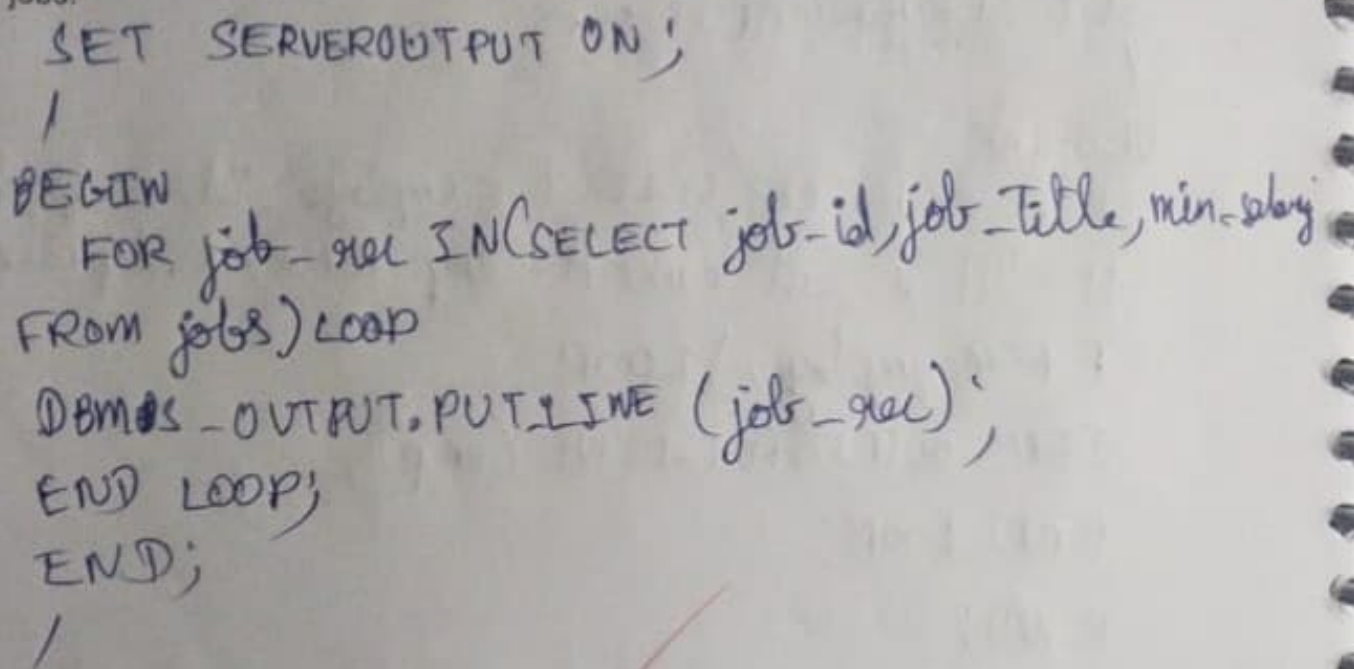 SET SERVEROUTPUT ON;
/
BEGIN
FOR job_rec IN(SELECT job_id,job_Title,min_salary
FROM jobs)LOOP
DBMS_OUTPUT.PUT_LINE (job_rec);
END LOOP;
END;
/